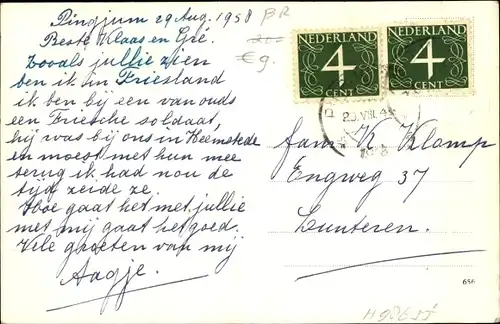 Pingjum 29 Aug. 1958
BR
Beste Klaas en Gré.
€9.
Zooals jullie zien
ben ik in Friesland
ik ben bij een van ouds
een Friesche soldaat,
hij was bij ons in Heemstede
en moest met hun mee
terug ik had nou de
tijd zeide ze.
Hoe gaat het met jullie
met mij gaat het goed.
Vele groeten van mij
Aagje.
NEDERLAND
4
CENT
NEDERLAND
4
CENT
fam. K Klomp
Engweg 37
Lunteren.
656